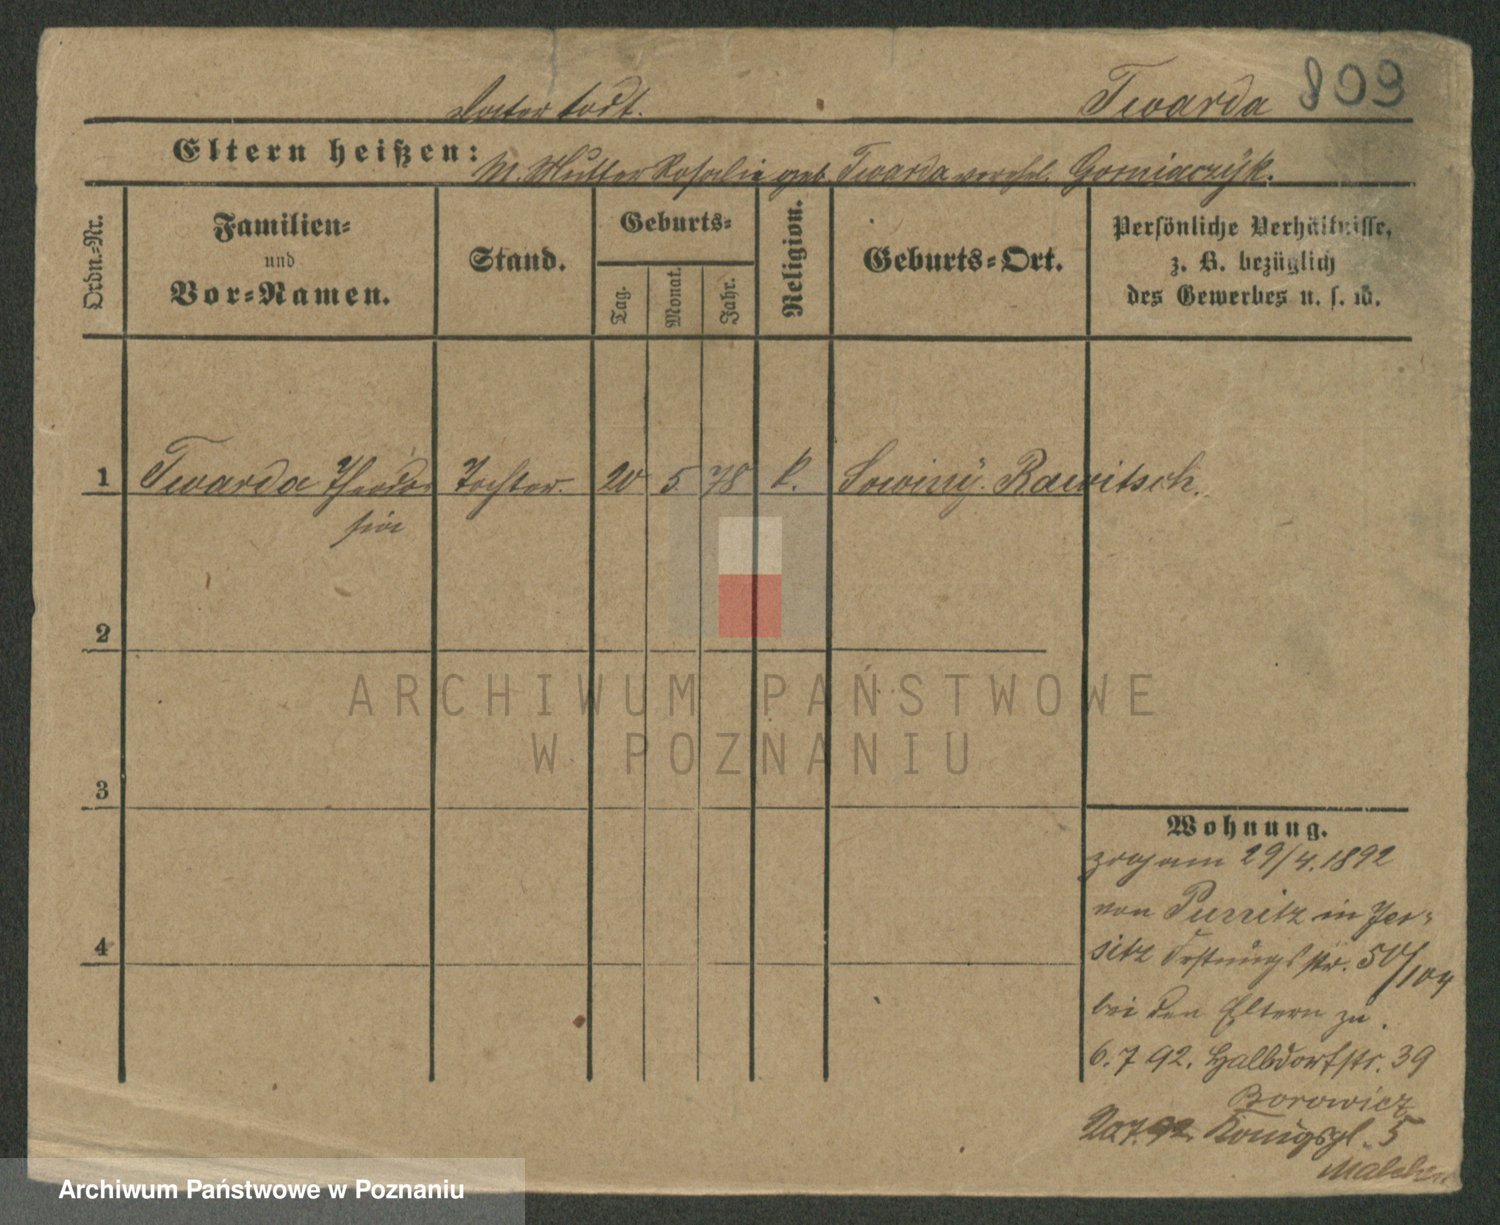 Vater todt. Twarda 809
Eltern heißen: M. Mutter Rosalie geb. Twarda verehel. Gorniaczyk.
Ordn.-Nr.
Familien- und Vor-Namen.
Stand.
Geburts-
Tag.
Monat.
Jahr.
Religion.
Geburts-Ort.
Persönliche Verhältnisse,
z. B. bezüglich
des Gewerbes u. s. w.
1 Twarda Theodo Tochter. 20 5 78 k. Sowiny. Rawitsch.
sia
2
3
4
Wohnung.
zog am 29/4. 1892
von Purritz in Jer-
sitz Festungsstr. 50/104
bei den Eltern zu.
6. 7 92. Halbdorfstr. 39
Borowicz
20.7.92 Königspl. 5
ARCHIWUM PAŃSTWOWE
W POZNANIU
Archiwum Państwowe w Poznaniu